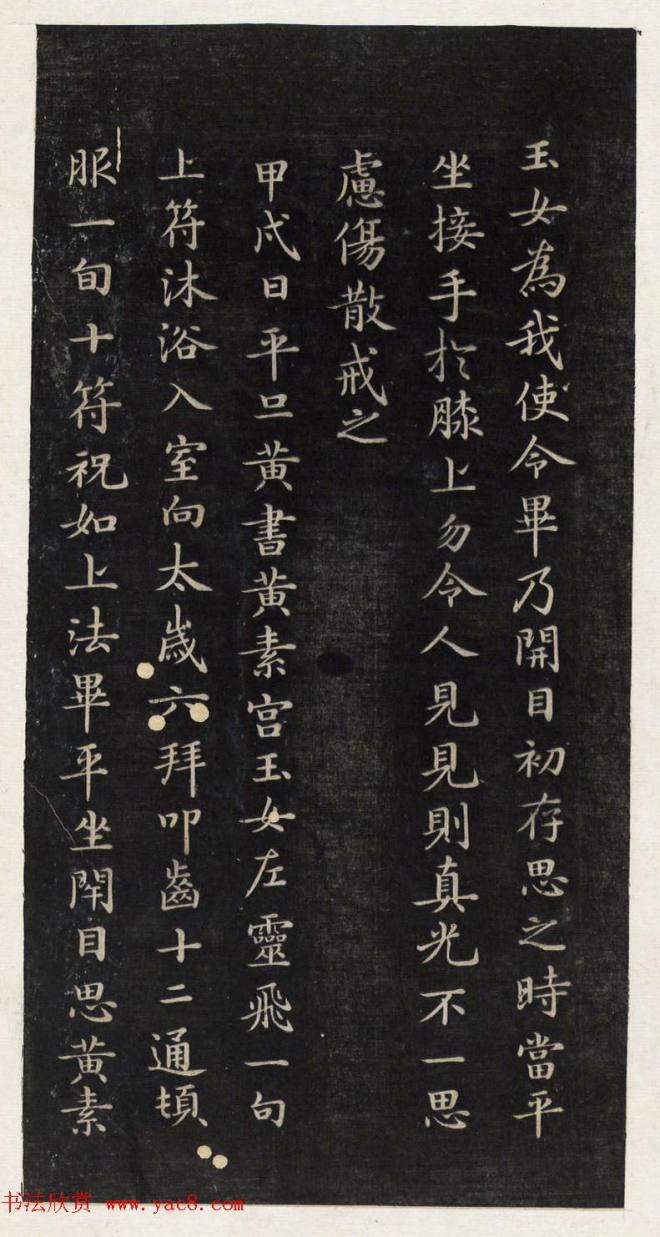 玉女為我使令畢乃開目初存思之時當平
坐接手於膝上勿令人見見則真光不一思
慮傷散戒之
甲戌日平旦黃書黃素宮玉女左靈飛一旬
上符沐浴入室向太歲六拜叩齒十二通頓
服一旬十符祝如上法畢平坐閇目思黃素
书法欣赏 www.yac8.com